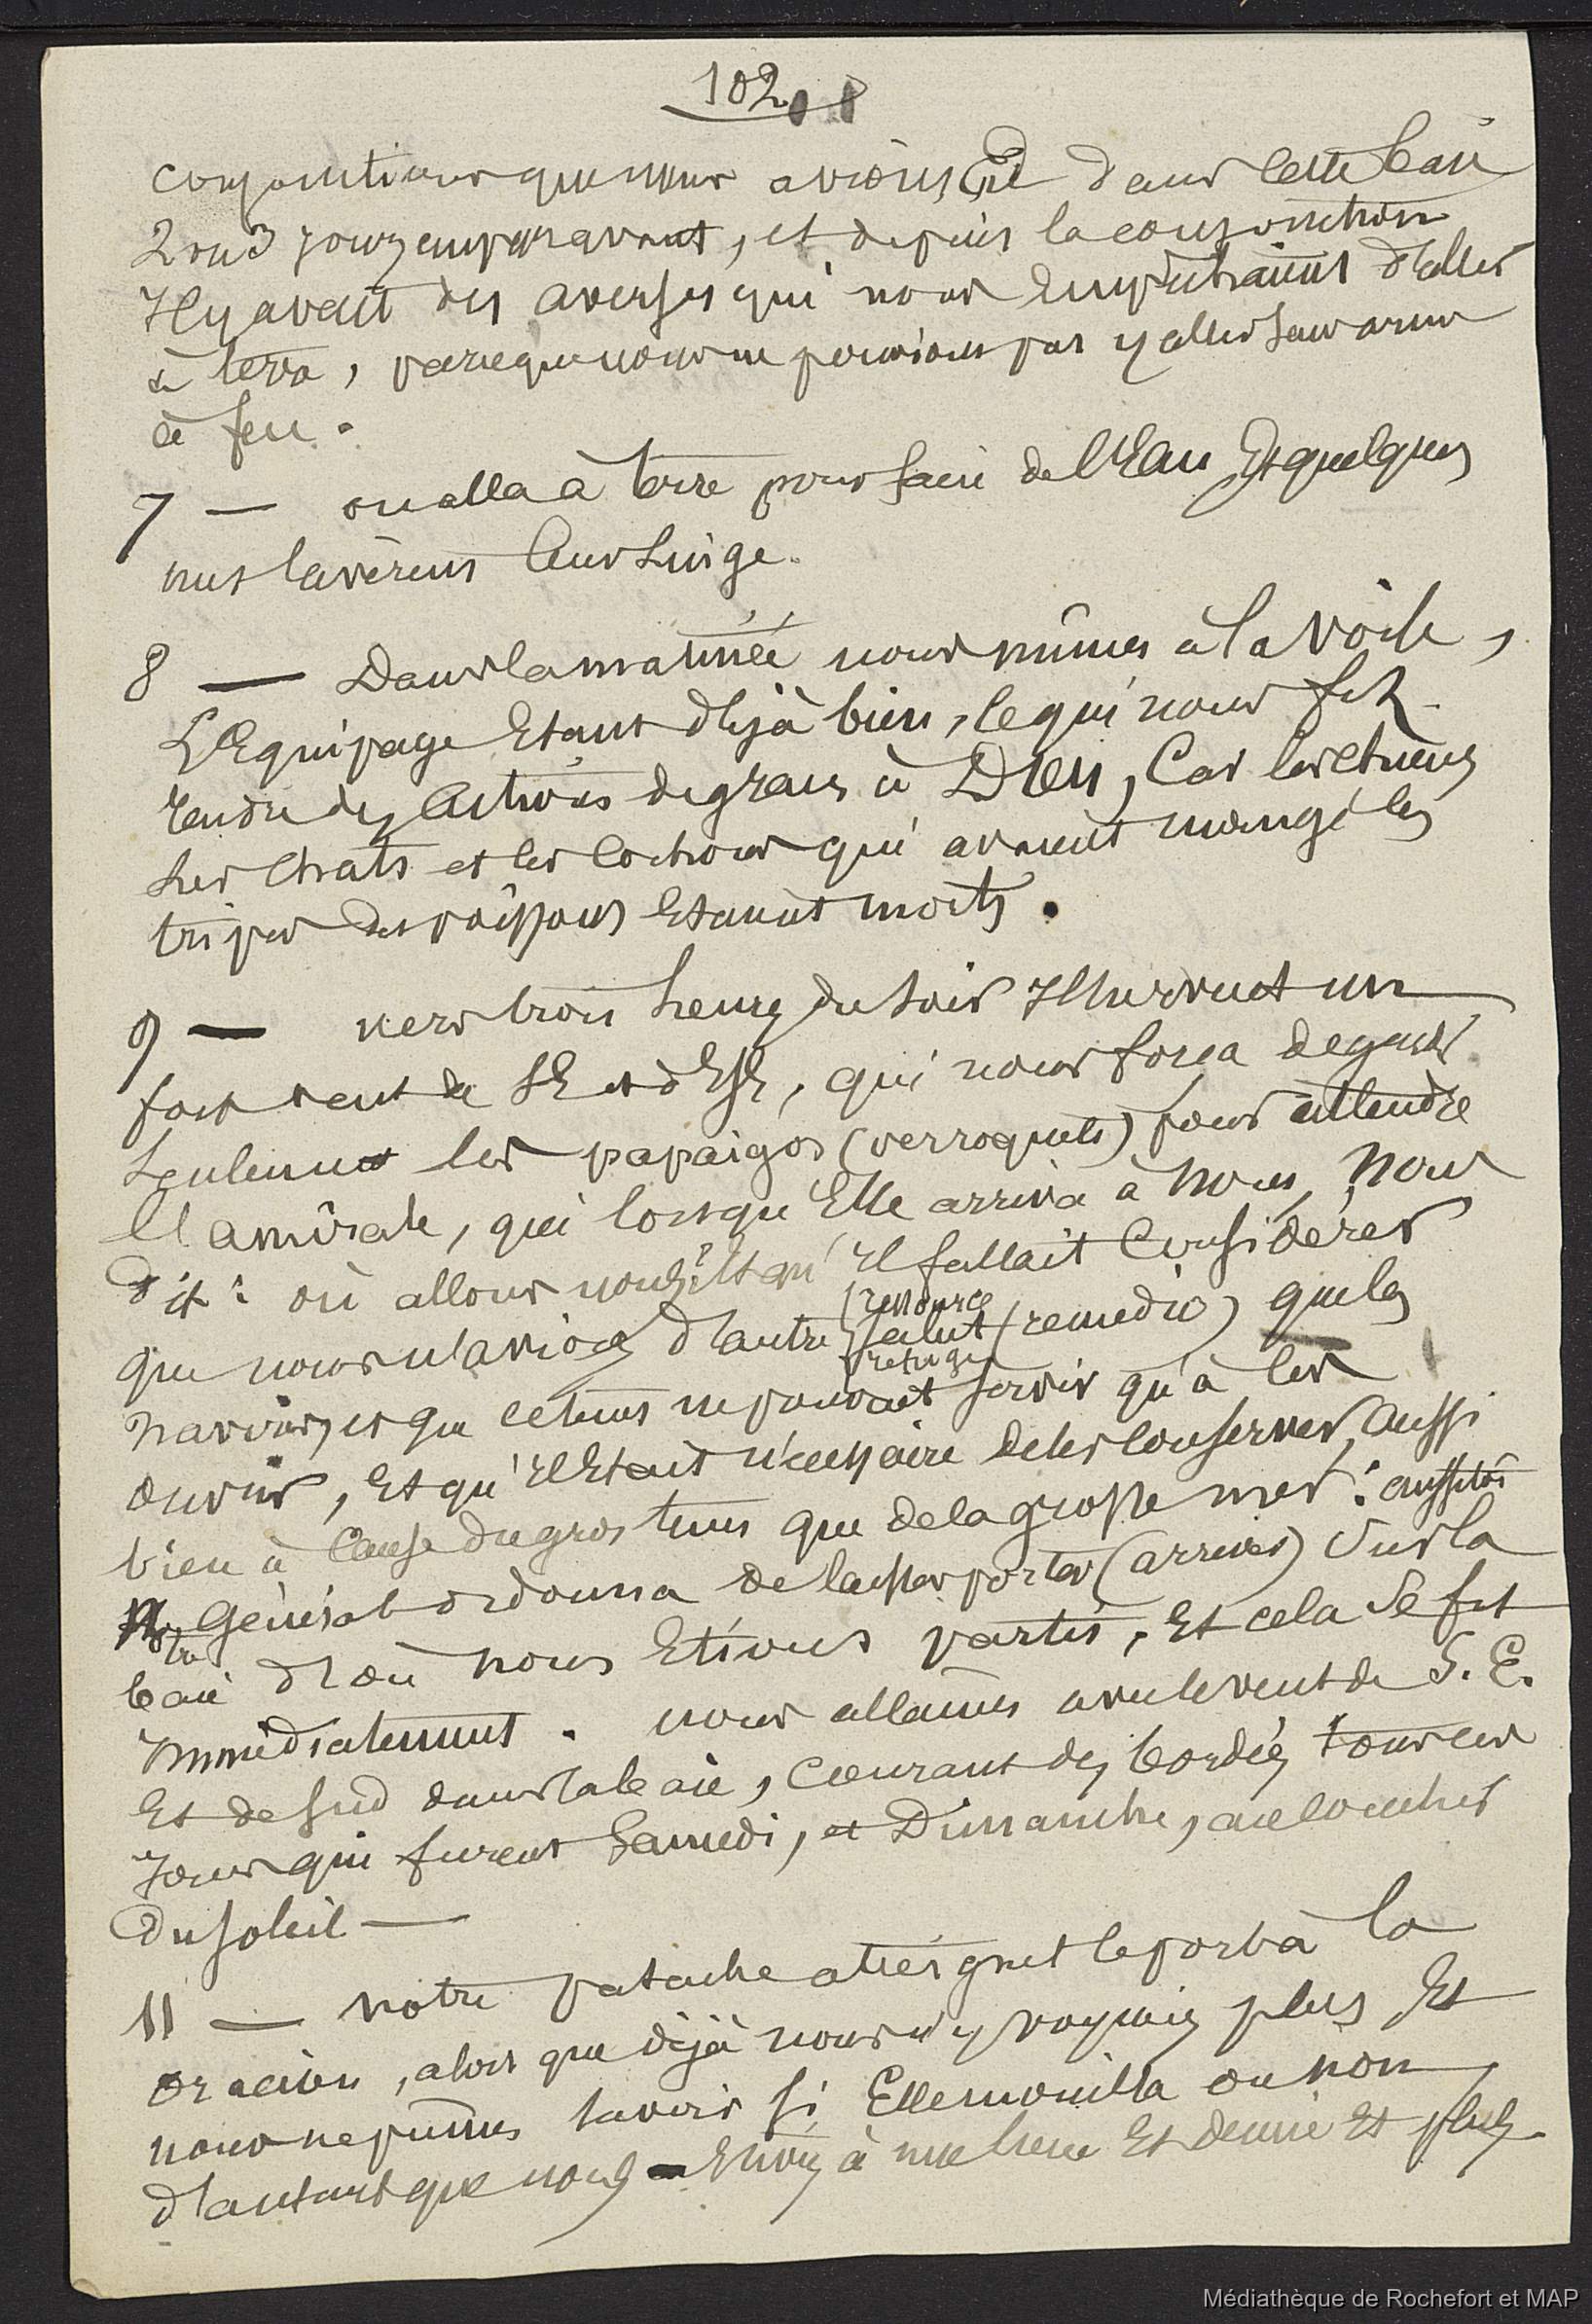 102
conjonctions que nous avions Eu dans cette baie
2 ou 3 jours auparavant, et depuis la conjonction
Il y avait des averses qui nous Empêchaient d'aller
à terre, parceque nous ne pouvions pas y aller sans armes
à feu.
7 — on alla à terre pour faire de l'Eau Et quelques
uns lavèrent leur Linge.
8 — Dans la matinée nous mîmes à la voile,
L'Equipage Etant déjà bien, ce qui nous fit
rendre des actions de graces à Dieu, Car les chiens
Les chats et les cochons qui avaient mangé les
tripes des poissons Etaient morts.
9 — vers trois heures du soir Il survint un
fort vent de SE et d'ESE, qui nous força de garder
Seulement les papaigos (perroquets) pour attendre
l'amirale, qui lorsqu'Elle arriva à nous, nous
dit: où allons nous? Et qu'Il fallait Considérer
que nous n'avions d'autre salut (remedio) que les
(ressource
refuge
navires, et que ce tems ne pouvait servir qu'à les
ouvrir, Et qu'Il Etait nécessaire de les conserver, aussi
bien à Cause du gros tems que de la grosse mer: aussitôt
Le Général ordonna de laisser porter (arriver) sur la
baie d'où nous Etions partis, Et cela se fit
Immédiatement. nous allâmes avec le vent de S. E.
Et de sud dans la baie, Courant des bordées tous ces
Jours qui furent Samedi, et Dimanche, au coucher
du soleil —
11 — notre patache atteignit le port à la
oracion, alors que déjà nous n'y voyions plus Et
nous ne pûmes savoir si Elle mouilla ou non,
d'autant que nous à une heure Et demie Et plus
Médiathèque de Rochefort et MAP